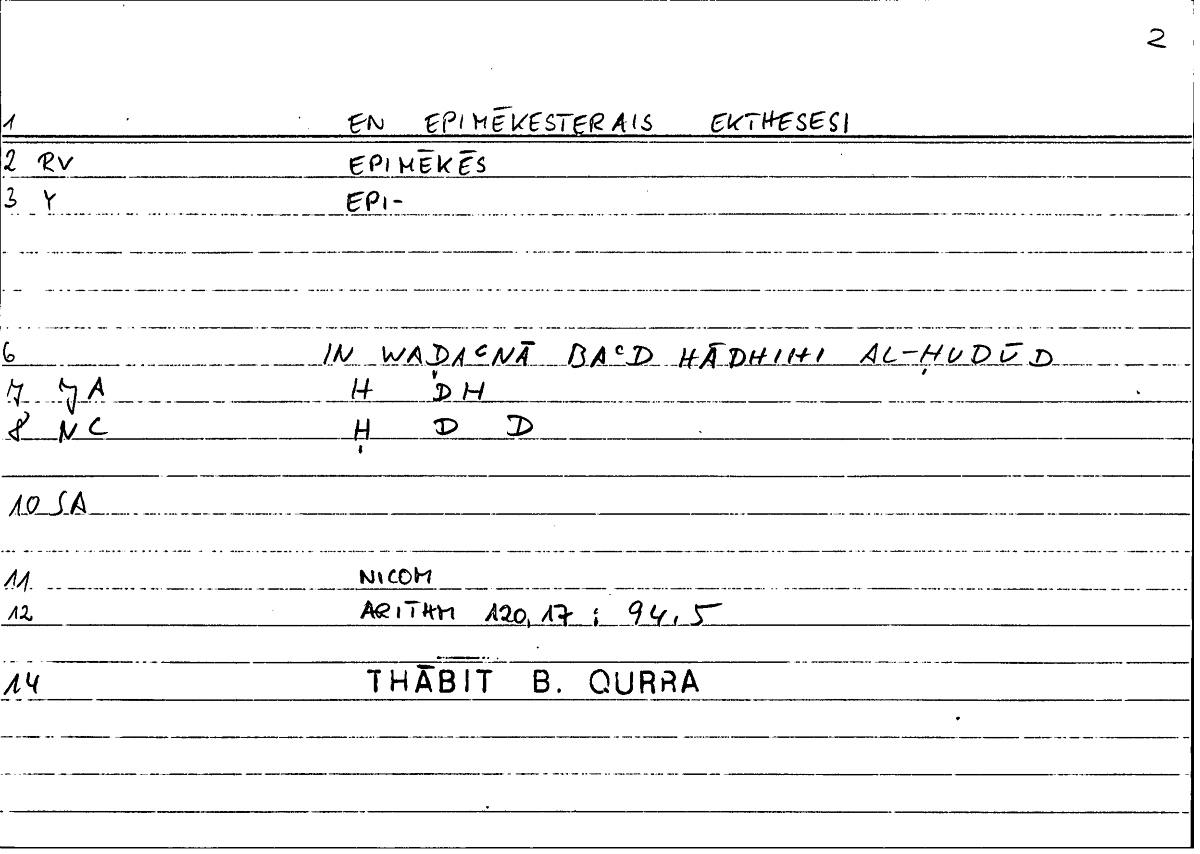 2
1 EN EPIMĒKESTERAIS EKTHESESI
2 RV EPIMĒKĒS
3 Y EPI-
6 IN WAḌAᶜNĀ BAᶜD HĀDHIHI AL-ḤUDŪD
7 JA H DH
8 NC Ḥ D D
10 SA
11 NICOM
12 ARITHM 120,17 ; 94,5
14 THĀBIT B. QURRA